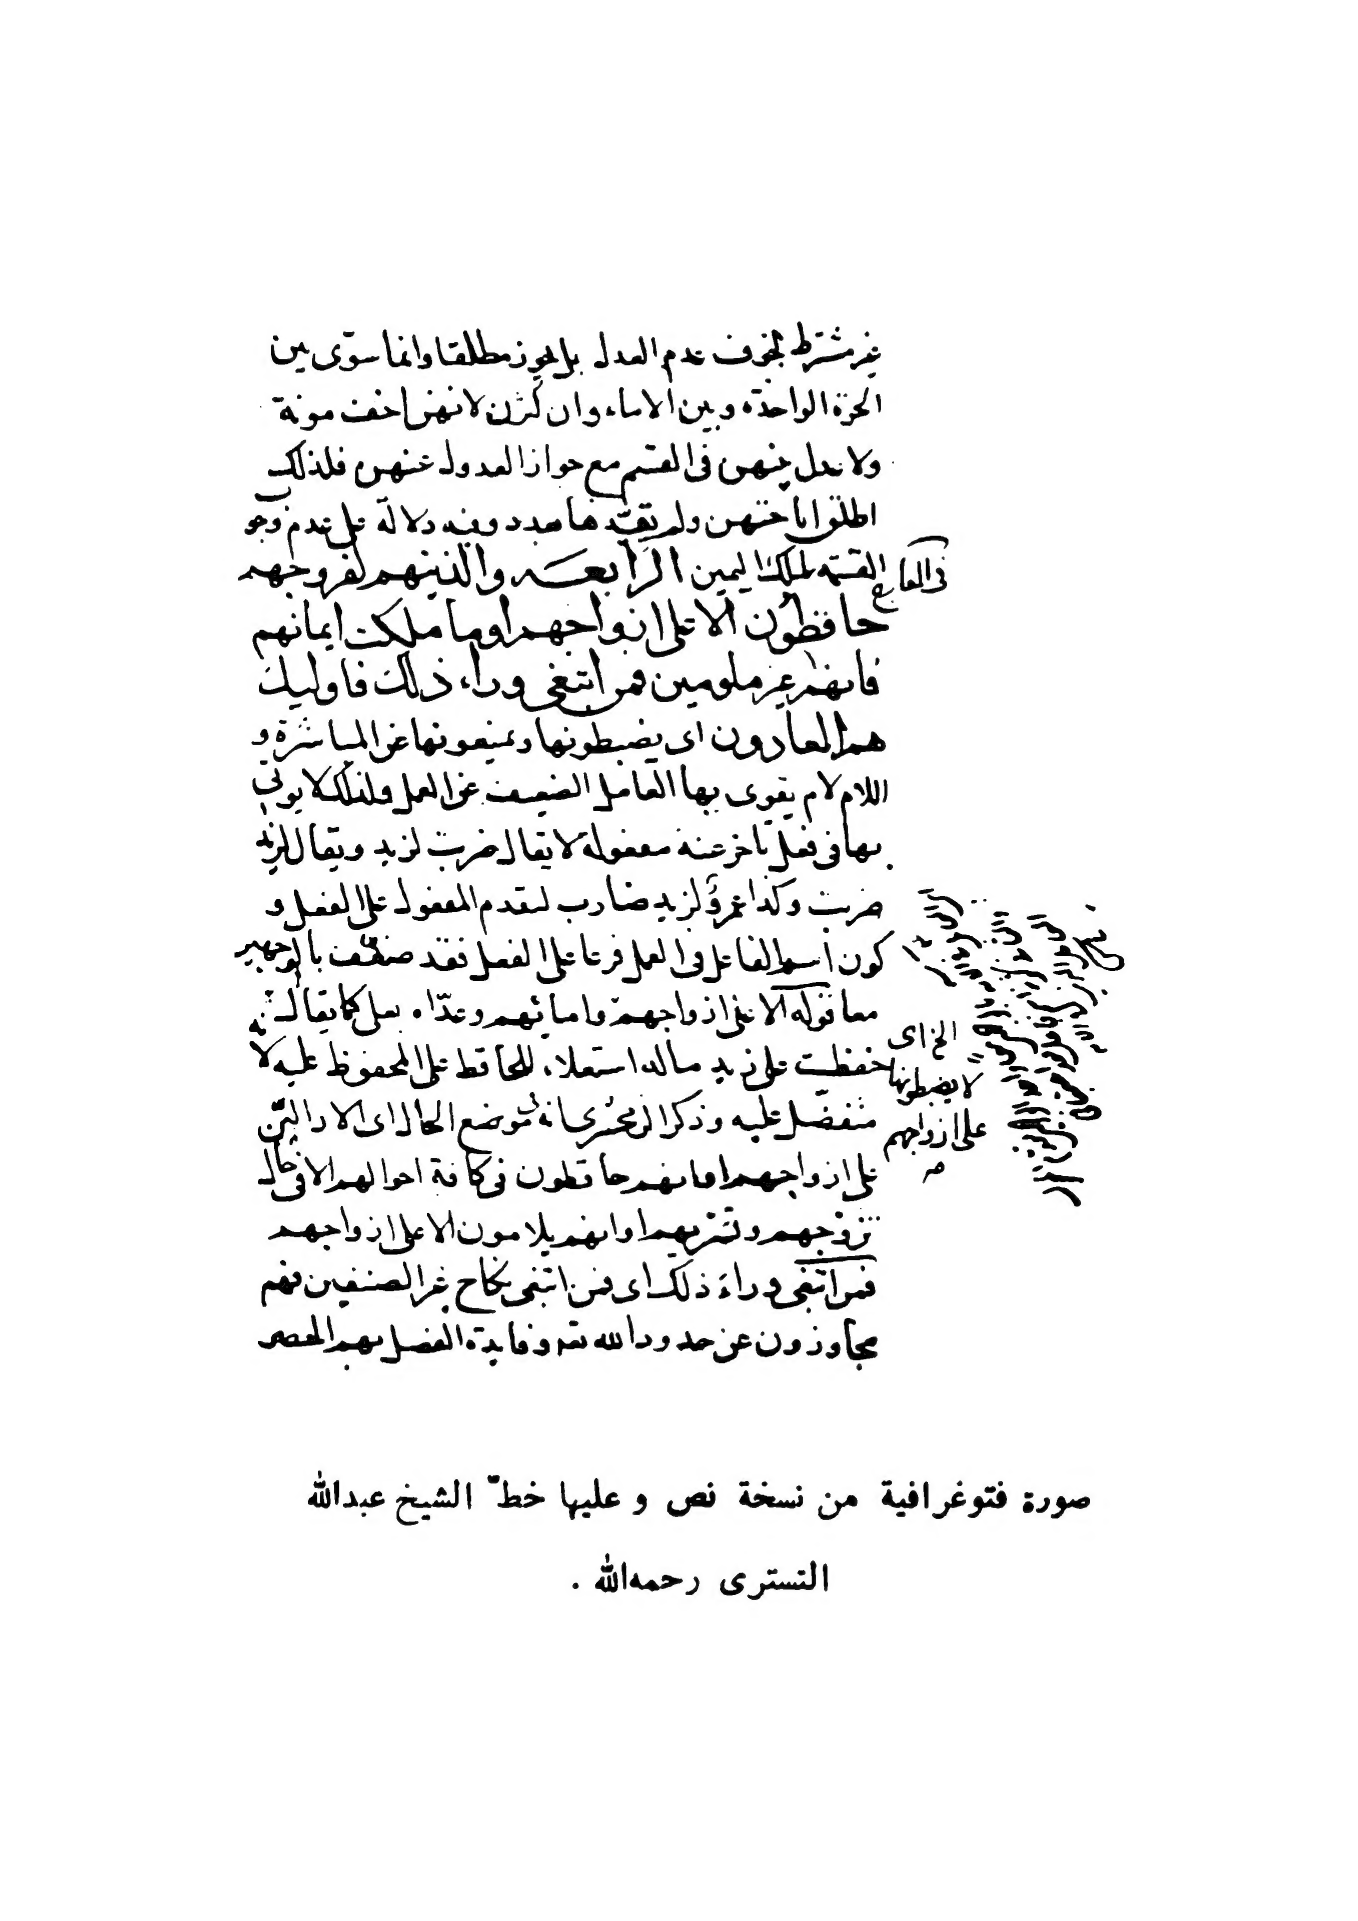 غير مشترط بخوف عدم العدل بل يجوز مطلقا وانما سوّى بين
الحرّة الواحدة وبين الاماء وان كثرن لانهنّ اخف مونة
ولا عدل بينهن فى القسم مع جواز العدول عنهن فلذلك
اطلق اباحتهن ولم يقيّدها بعدد وفيه دلالة على عدم وجو
القسمة لملك اليمين الرابعه والذينهم لفروجهم
حافظون الا على ازواجهم او ما ملكت ايمانهم
فانهم غير ملومين فمن ابتغى وراء ذلك فاوليك
هم العادون اى يضبطونها ويمنعونها عن المباشرة و
اللام لام يقوى بها العامل الضعيف عن العمل ولذلك لا يوتى
بها فى فعل تاخر عنه مفعوله لا يقال ضربت لزيد ويقال لزيد
ضربت وكذا عمرو لزيد ضارب لتقدم المفعول على الفعل و
كون اسم الفاعل فى العمل فرعا على الفعل فقد ضعف بالوجهين
معا قوله الا على ازواجهم وامائهم وعدّاه بعلى كما يقال
حفظت على زيد ماله استعلاء للحافظ على المحفوظ عليه لانه
متفضّل عليه وذكر الزمخشرى انه فى موضع الحال اى الا والين
على ازواجهم او انهم حافظون فى كافة احوالهم الا فى حال
تزوجهم وتسريهم او انهم يلامون الا على ازواجهم
فمن ابتغى وراء ذلك اى فمن ابتغى نكاح غير الصنفين فهم
مجاوزون عن حدود الله تعه وفايدة الفصل بهم الحصر
الخ اى
لا يضبطونها
على ازواجهم
صورة فتوغرافية من نسخة نص و عليها خطّ الشيخ عبدالله
التسترى رحمه‌الله .